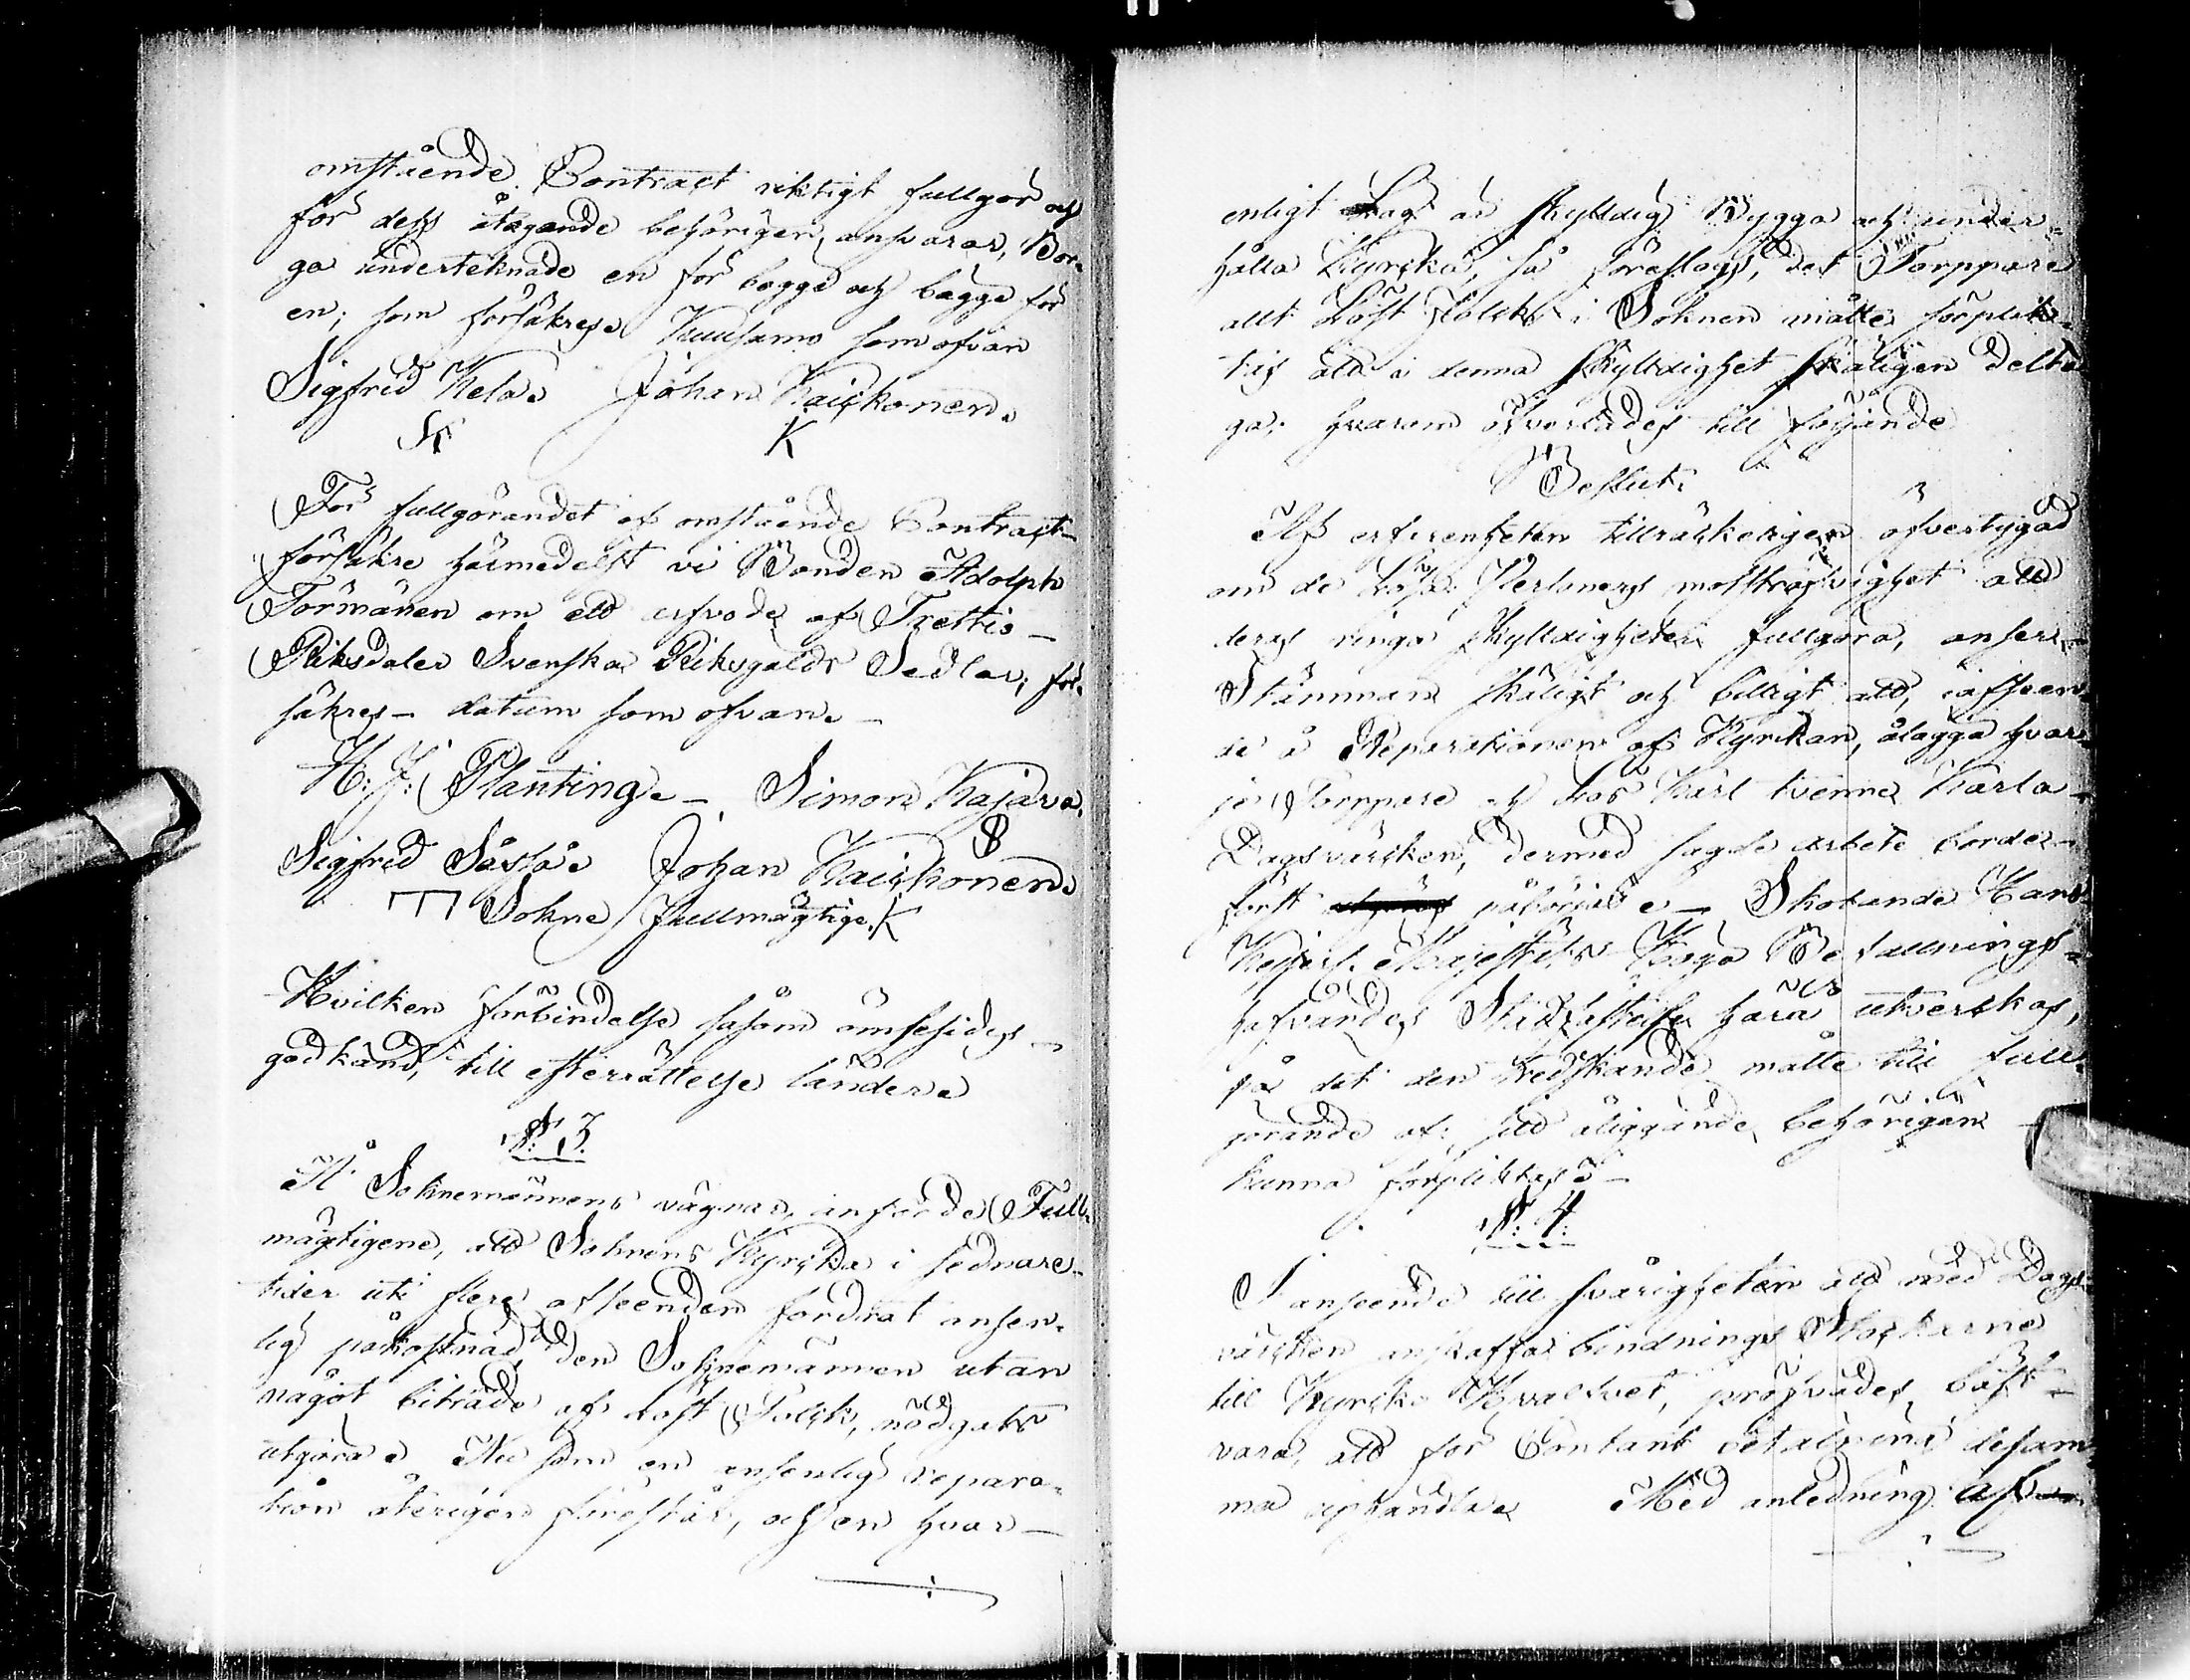 omstående Contract riktigt fullgör och
för dess åtagande behörigen ansvarar, Bor-
ga underteknade en för bägge och bägge för
en; som försäkres. Kuusamo som ofvan
Sigfrid Kela. Johan Kaiskonen.
K
För fullgörandet af omstående Contract
försäkre härmedelst vi Bonden Adolph
Törmänen om ett arfvode af Trettio
Riksdaler Svenska Riksgälds Sedlar; för-
säkres – datum som ofvan. –
H: J: Planting. – Simon Kajava.
Sigfrid Säsjä. Johan Kaiskonen.
Sokne Fullmägtige. K
Hvilken förbindelse såsom ömsesides
godkänd, till efterrättelse länder.
§: 3.
Å Soknemännens vägnar, anförde Full-
mägtigene, att Soknens Kyrcka i sednare
tider uti flere afseenden fordrat ansen-
lig påkostnad, den Soknemännen utan
något biträde af löst Folck, nödgats
utgöra. Nu som en ansenlig repara-
tion återigen förestår, och en hvar –
enligt Lag är skylldig Bygga och under-
hålla Kyrcka, så föreslogs, det Torppare
allt Löst Folck i Soknen måtte förplik-
tas att i denna skylldighet skäligen delta
ga; hvarom öfverlades till följande
Beslut:
Af erfarenheten tillräckeligen öfvertygad
om de Lösa Personers motsträfvighet att
deras ringa skylldigheter fullgöra, anser
Stämman skäligt och billigt att, i afseen-
de å Reparationen af Kyrkan, ålägga hvar-
je Torppare och Lös Karl tvenne Karla
Dagsvärcken, dermed sagde arbete borde
först påbörjas. – Skolande Hans
Kejserl. Majestäts Höga Befallnings-
hafvandes Stadfästelse härå utverkas,
på det den tredskande måtte till full-
görande af sitt åliggande behörigen
kunna förpliktas. –
§: 4.
I anseende till svårigheten att med Dags-
värcken anskaffa bindnings Stockarne
till Kyrcko Hvalfvet, pröfvades bäst
vara, att för Contant betalning desam-
ma uphandla. Med anledning af